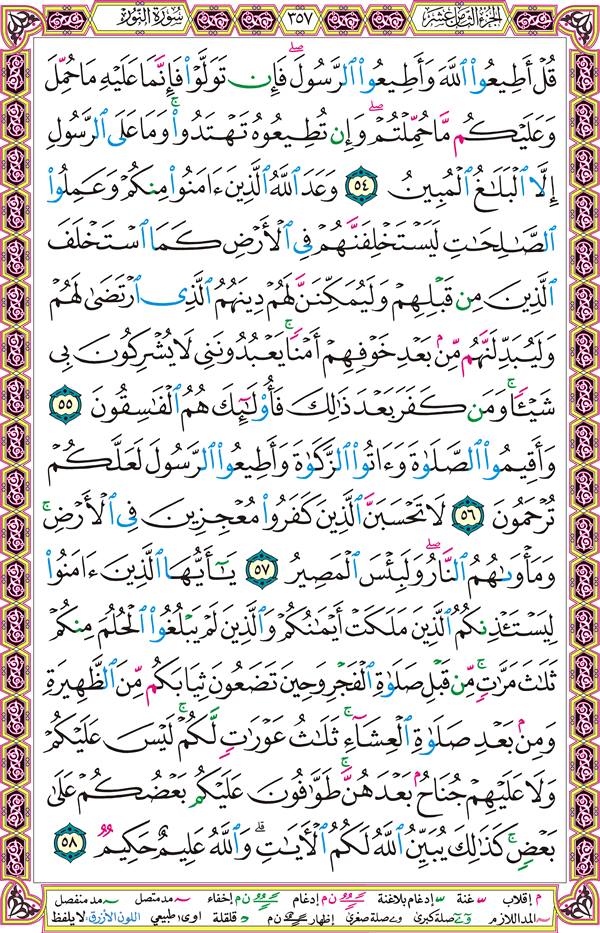 الجزء الثامن عشر ٣٥٧ سورة النور
قُلْ أَطِيعُوا۟ ٱللَّهَ وَأَطِيعُوا۟ ٱلرَّسُولَ ۖ فَإِن تَوَلَّوْا۟ فَإِنَّمَا عَلَيْهِ مَا حُمِّلَ
وَعَلَيْكُم مَّا حُمِّلْتُمْ ۖ وَإِن تُطِيعُوهُ تَهْتَدُوا۟ ۚ وَمَا عَلَى ٱلرَّسُولِ
إِلَّا ٱلْبَلَٰغُ ٱلْمُبِينُ ٥٤ وَعَدَ ٱللَّهُ ٱلَّذِينَ ءَامَنُوا۟ مِنكُمْ وَعَمِلُوا۟
ٱلصَّٰلِحَٰتِ لَيَسْتَخْلِفَنَّهُمْ فِى ٱلْأَرْضِ كَمَا ٱسْتَخْلَفَ
ٱلَّذِينَ مِن قَبْلِهِمْ وَلَيُمَكِّنَنَّ لَهُمْ دِينَهُمُ ٱلَّذِى ٱرْتَضَىٰ لَهُمْ
وَلَيُبَدِّلَنَّهُم مِّنۢ بَعْدِ خَوْفِهِمْ أَمْنًا ۚ يَعْبُدُونَنِى لَا يُشْرِكُونَ بِى
شَيْـًٔا ۚ وَمَن كَفَرَ بَعْدَ ذَٰلِكَ فَأُو۟لَٰٓئِكَ هُمُ ٱلْفَٰسِقُونَ ٥٥
وَأَقِيمُوا۟ ٱلصَّلَوٰةَ وَءَاتُوا۟ ٱلزَّكَوٰةَ وَأَطِيعُوا۟ ٱلرَّسُولَ لَعَلَّكُمْ
تُرْحَمُونَ ٥٦ لَا تَحْسَبَنَّ ٱلَّذِينَ كَفَرُوا۟ مُعْجِزِينَ فِى ٱلْأَرْضِ ۚ
وَمَأْوَىٰهُمُ ٱلنَّارُ ۖ وَلَبِئْسَ ٱلْمَصِيرُ ٥٧ يَٰٓأَيُّهَا ٱلَّذِينَ ءَامَنُوا۟
لِيَسْتَـْٔذِنكُمُ ٱلَّذِينَ مَلَكَتْ أَيْمَٰنُكُمْ وَٱلَّذِينَ لَمْ يَبْلُغُوا۟ ٱلْحُلُمَ مِنكُمْ
ثَلَٰثَ مَرَّٰتٍ ۚ مِّن قَبْلِ صَلَوٰةِ ٱلْفَجْرِ وَحِينَ تَضَعُونَ ثِيَابَكُم مِّنَ ٱلظَّهِيرَةِ
وَمِنۢ بَعْدِ صَلَوٰةِ ٱلْعِشَآءِ ۚ ثَلَٰثُ عَوْرَٰتٍ لَّكُمْ ۚ لَيْسَ عَلَيْكُمْ
وَلَا عَلَيْهِمْ جُنَاحٌۢ بَعْدَهُنَّ ۚ طَوَّٰفُونَ عَلَيْكُم بَعْضُكُمْ عَلَىٰ
بَعْضٍ ۚ كَذَٰلِكَ يُبَيِّنُ ٱللَّهُ لَكُمُ ٱلْءَايَٰتِ ۗ وَٱللَّهُ عَلِيمٌ حَكِيمٌ ٥٨
م إقلاب س غنة س إدغام بلاغنة ن م إدغام ن م إخفاء مد متصل مد منفصل
المد اللازم صلة كبرى صلة صغرى إظهار ن م قلقلة اوى طبيعي اللون الأزرق: لا يلفظ